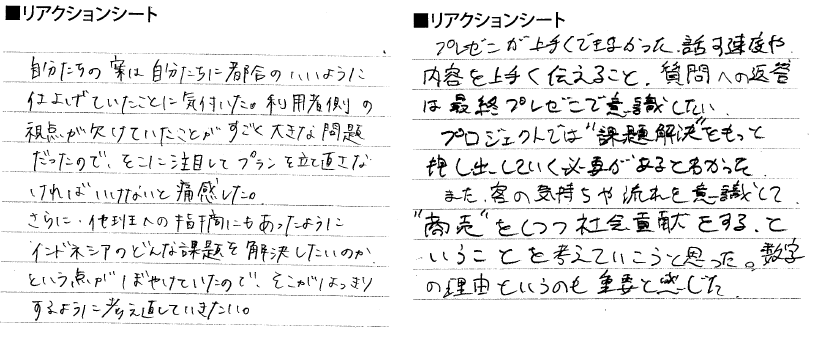 ■リアクションシート
自分たちの案は自分たちに都合のいいように
仕上げていたことに気付いた。利用者側の
視点が欠けていたことがすごく大きな問題
だったので、そこに注目してプランを立て直さな
ければいけないと痛感した。
さらに、他班への指摘にもあったように
インドネシアのどんな課題を解決したいのか
という点がぼやけていたので、そこがはっきり
するように考え直していきたい。
■リアクションシート
プレゼンが上手くできなかった。話す速度や
内容を上手く伝えること、質問への返答
は最終プレゼンで意識したい。
プロジェクトでは"課題解決"をもっと
押し出していく必要があるともわかった。
また、客の気持ちや流れを意識して
"商売"をしつつ社会貢献をする、と
いうことを考えていこうと思った。数字
の理由というのも重要と感じた。